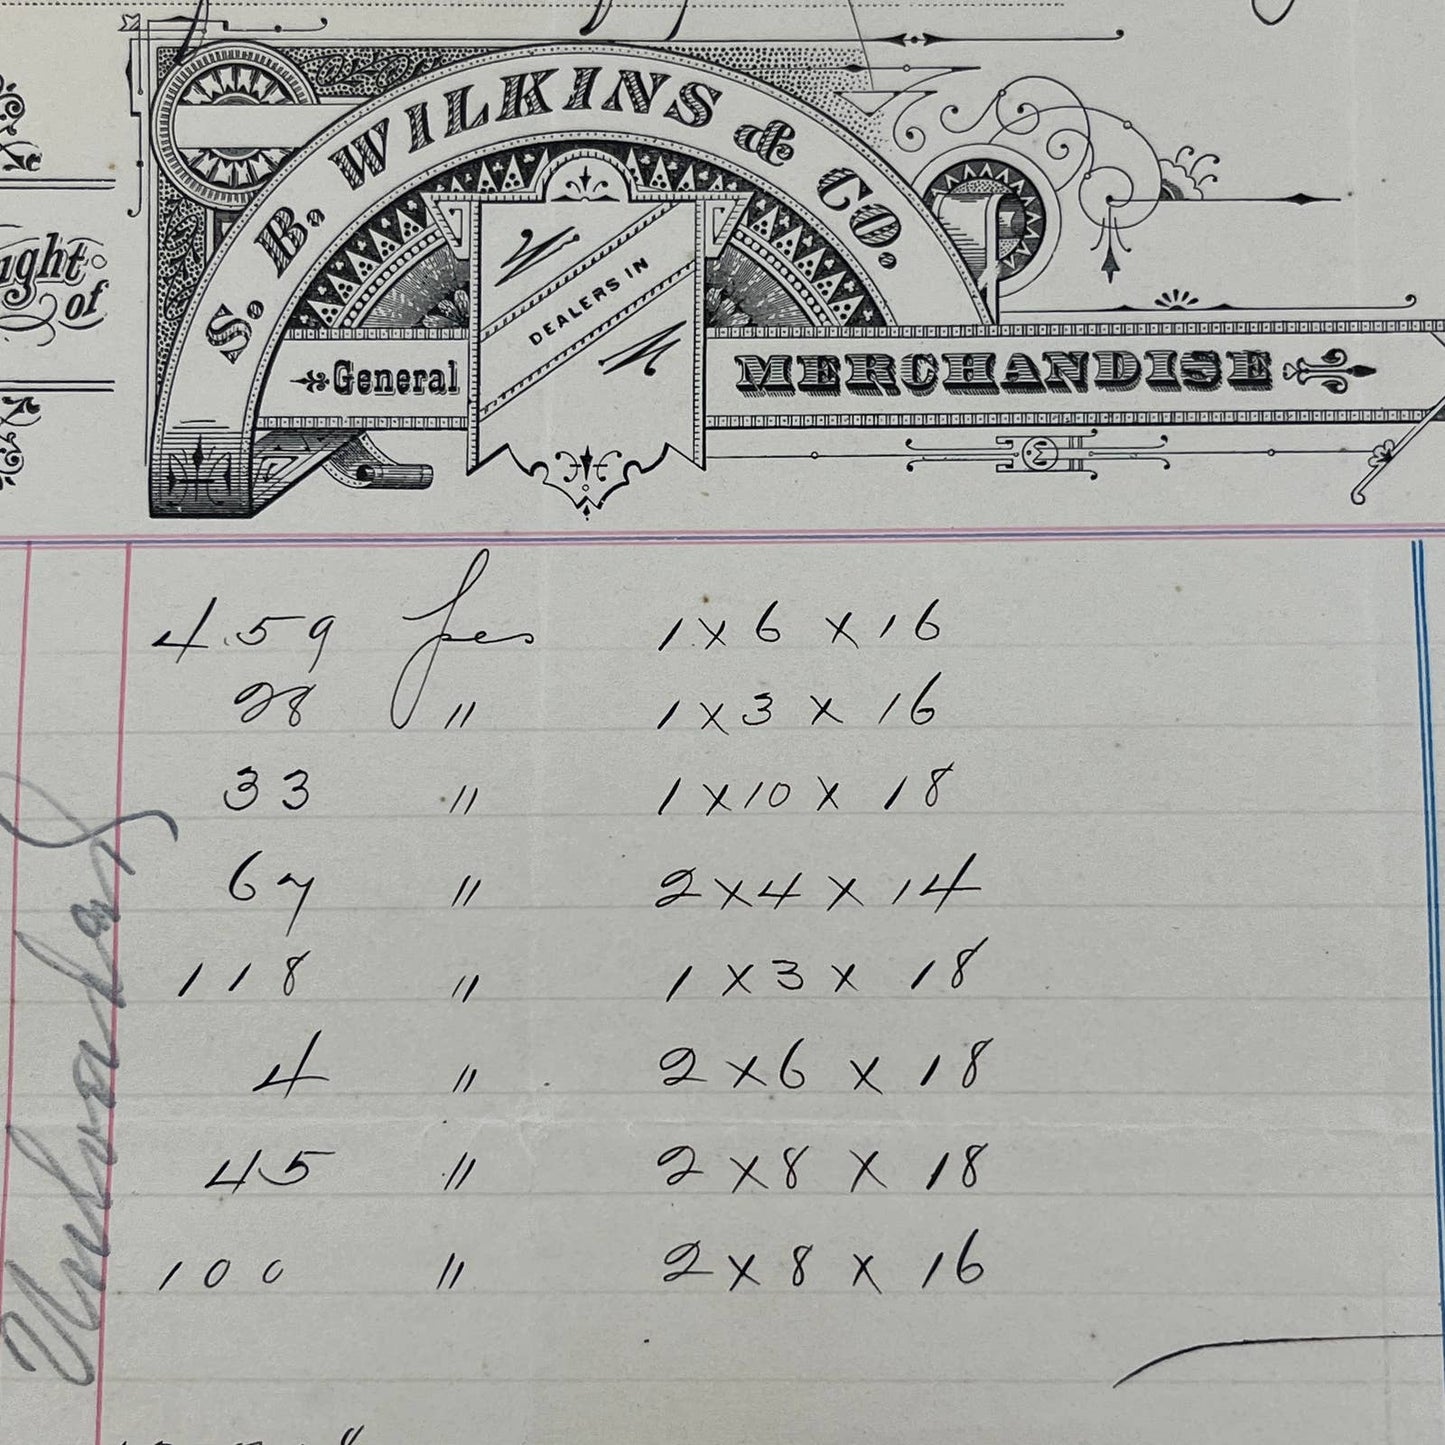 S. B. WILKINS & CO.
ught of
DEALERS IN
General MERCHANDISE
459 pcs 1 x 6 x 16
28 " 1 x 3 x 16
33 " 1 x 10 x 18
67 " 2 x 4 x 14
118 " 1 x 3 x 18
4 " 2 x 6 x 18
45 " 2 x 8 x 18
100 " 2 x 8 x 16